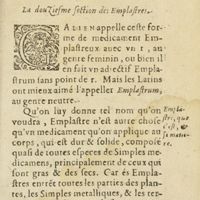 La douZiesme section des Emplastres.
GALIEN appelle ceste for-
me de medicament Em-
plastreux auec vn r, au
genre feminin, ou bien il
en fait vn adiectif Emplastrum
sans point de r. Mais les Latins
ont mieux aimé l'appeller Emplastrum,
au genre neutre.
Qu'on luy donne tel nom qu'on
voudra, Emplastre n'est autre chose
qu'vn medicament qu'on applique au
corps, qui est dur & solide, composé
quasi de toutes especes de Simples me-
dicamens, principalement de ceux qui
sont gras & des secs. Car és Empla-
stres entrét toutes les parties des plan-
tes, les Simples metalliques, & les ter-
Empla-
stre, que
c'est, &
sa matie-
re.